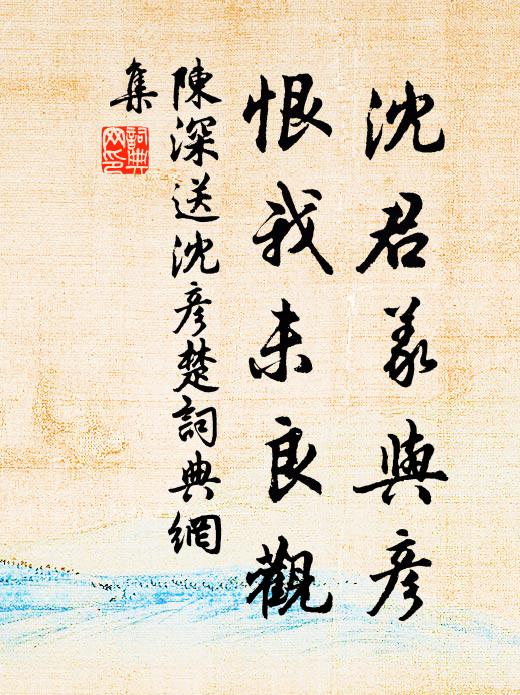 沈君羨與彥
恨我未良觀
陳深送沈彥楚詞典網
集
詞典網印